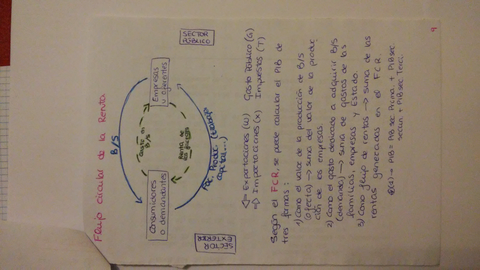 Flujo circular de la Renta
SECTOR
PÚBLICO
Empresas
u oferentes
B/S
Gasto en
B/S
Renta de
Fac. Produc. (trabajo
capital...)
Consumidores
o demandantes
SECTOR
EXTERIOR
Exportaciones (M)
Gasto Público (G)
Importaciones (X)
Impuestos (T)
Según el FCR, se puede calcular el PIB de
tres formas:
1) Como el valor de la producción de B/S
(oferta) → suma del valor de la produc
ción de las empresas
2) Como el gasto dedicado a adquirir B/S
(demanda) → suma de gastos de las
familias, empresas y Estado.
3) Como flujo de rentas → suma de las
rentas generadas en el FCR.
PIB = PIB sec Primo + PIB sec
Secun + PIB sec Terci.
9